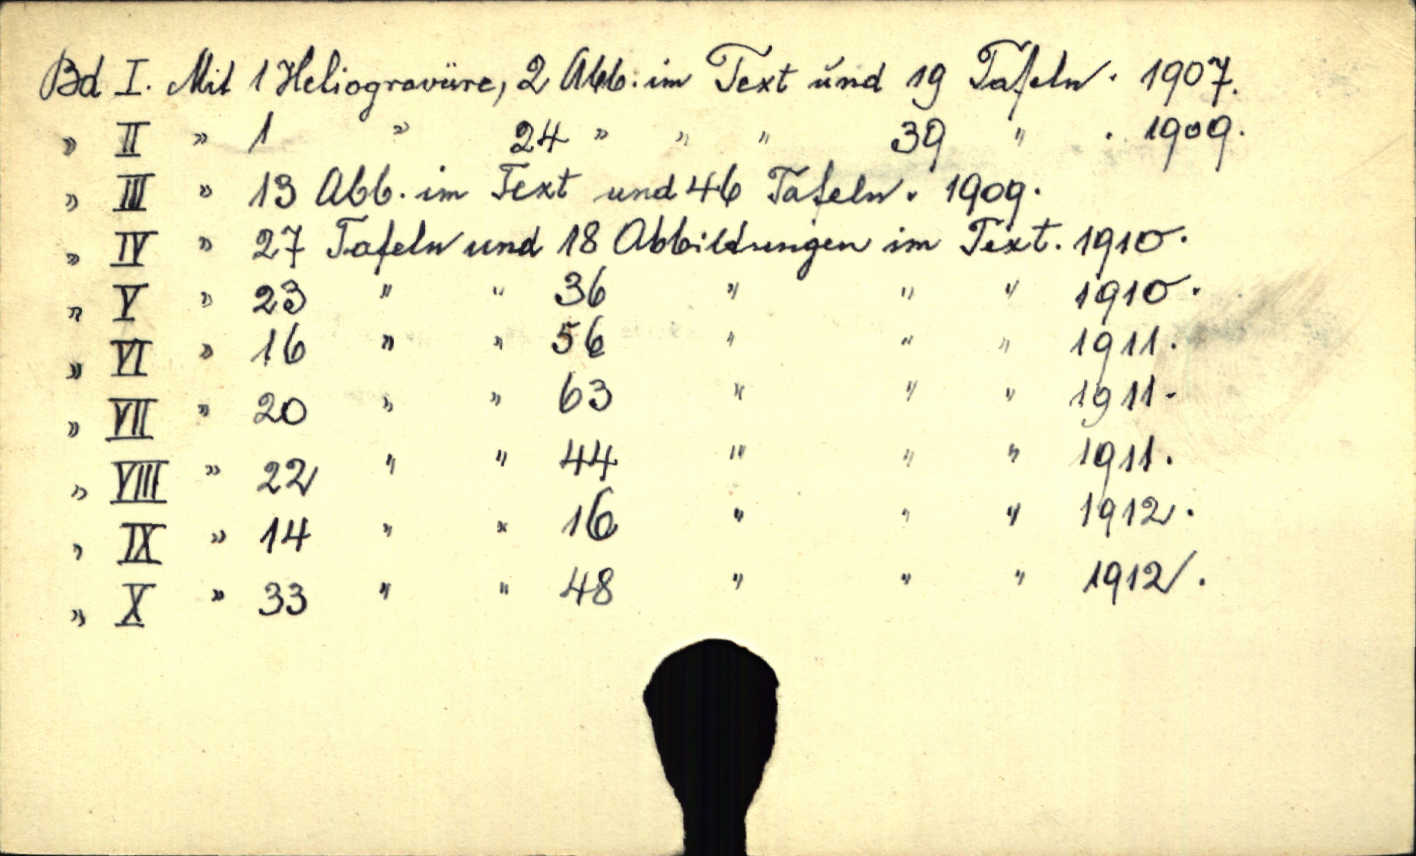 Bd I. Mit 1 Heliogravüre, 2 Abb. im Text und 19 Tafeln. 1907.
" II " 1 " 24 " " " 39 " . 1909.
" III " 13 Abb. im Text und 46 Tafeln. 1909.
" IV " 27 Tafeln und 18 Abbildungen im Text. 1910.
" V " 23 " " 36 " " " 1910.
" VI " 16 " " 56 " " " 1911.
" VII " 20 " " 63 " " " 1911.
" VIII " 22 " " 44 " " " 1911.
" IX " 14 " " 16 " " " 1912.
" X " 33 " " 48 " " " 1912.